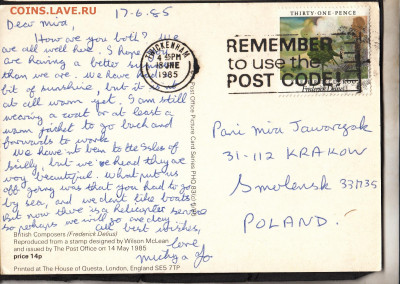 СОИНС.LAVE.RU
17-6.85
Dear Mira,
How are you both? We
are all well here. I hope you
are having a better summer
than we are. We have had a
bit of sunshine, but it is not
at all warm yet. I am still
wearing a coat or at least a
warm jacket to go back and
forwards to work.
We have not been to the Isles of
Scilly, but we've heard they are
very beautiful. What put us
off going was that you had to go
by sea, and we don't like boats.
But now there is a helicopter service
so perhaps we will go one day.
All best wishes,
love
British Composers (Frederick Delius)
Reproduced from a stamp designed by Wilson McLean
and issued by The Post Office on 14 May 1985
price 14p
Printed at The House of Questa, London, England SE5 7TP
Post Office Picture Card Series PHQ 83
TWICKENHAM
4 PM
18 JUNE
1985
THIRTY·ONE·PENCE
Frederick Delius
REMEMBER
to use the
POST CODE
Pani Mira Jaworzak
31-112 KRAKOW
Smoleńsk 33/135
POLAND.